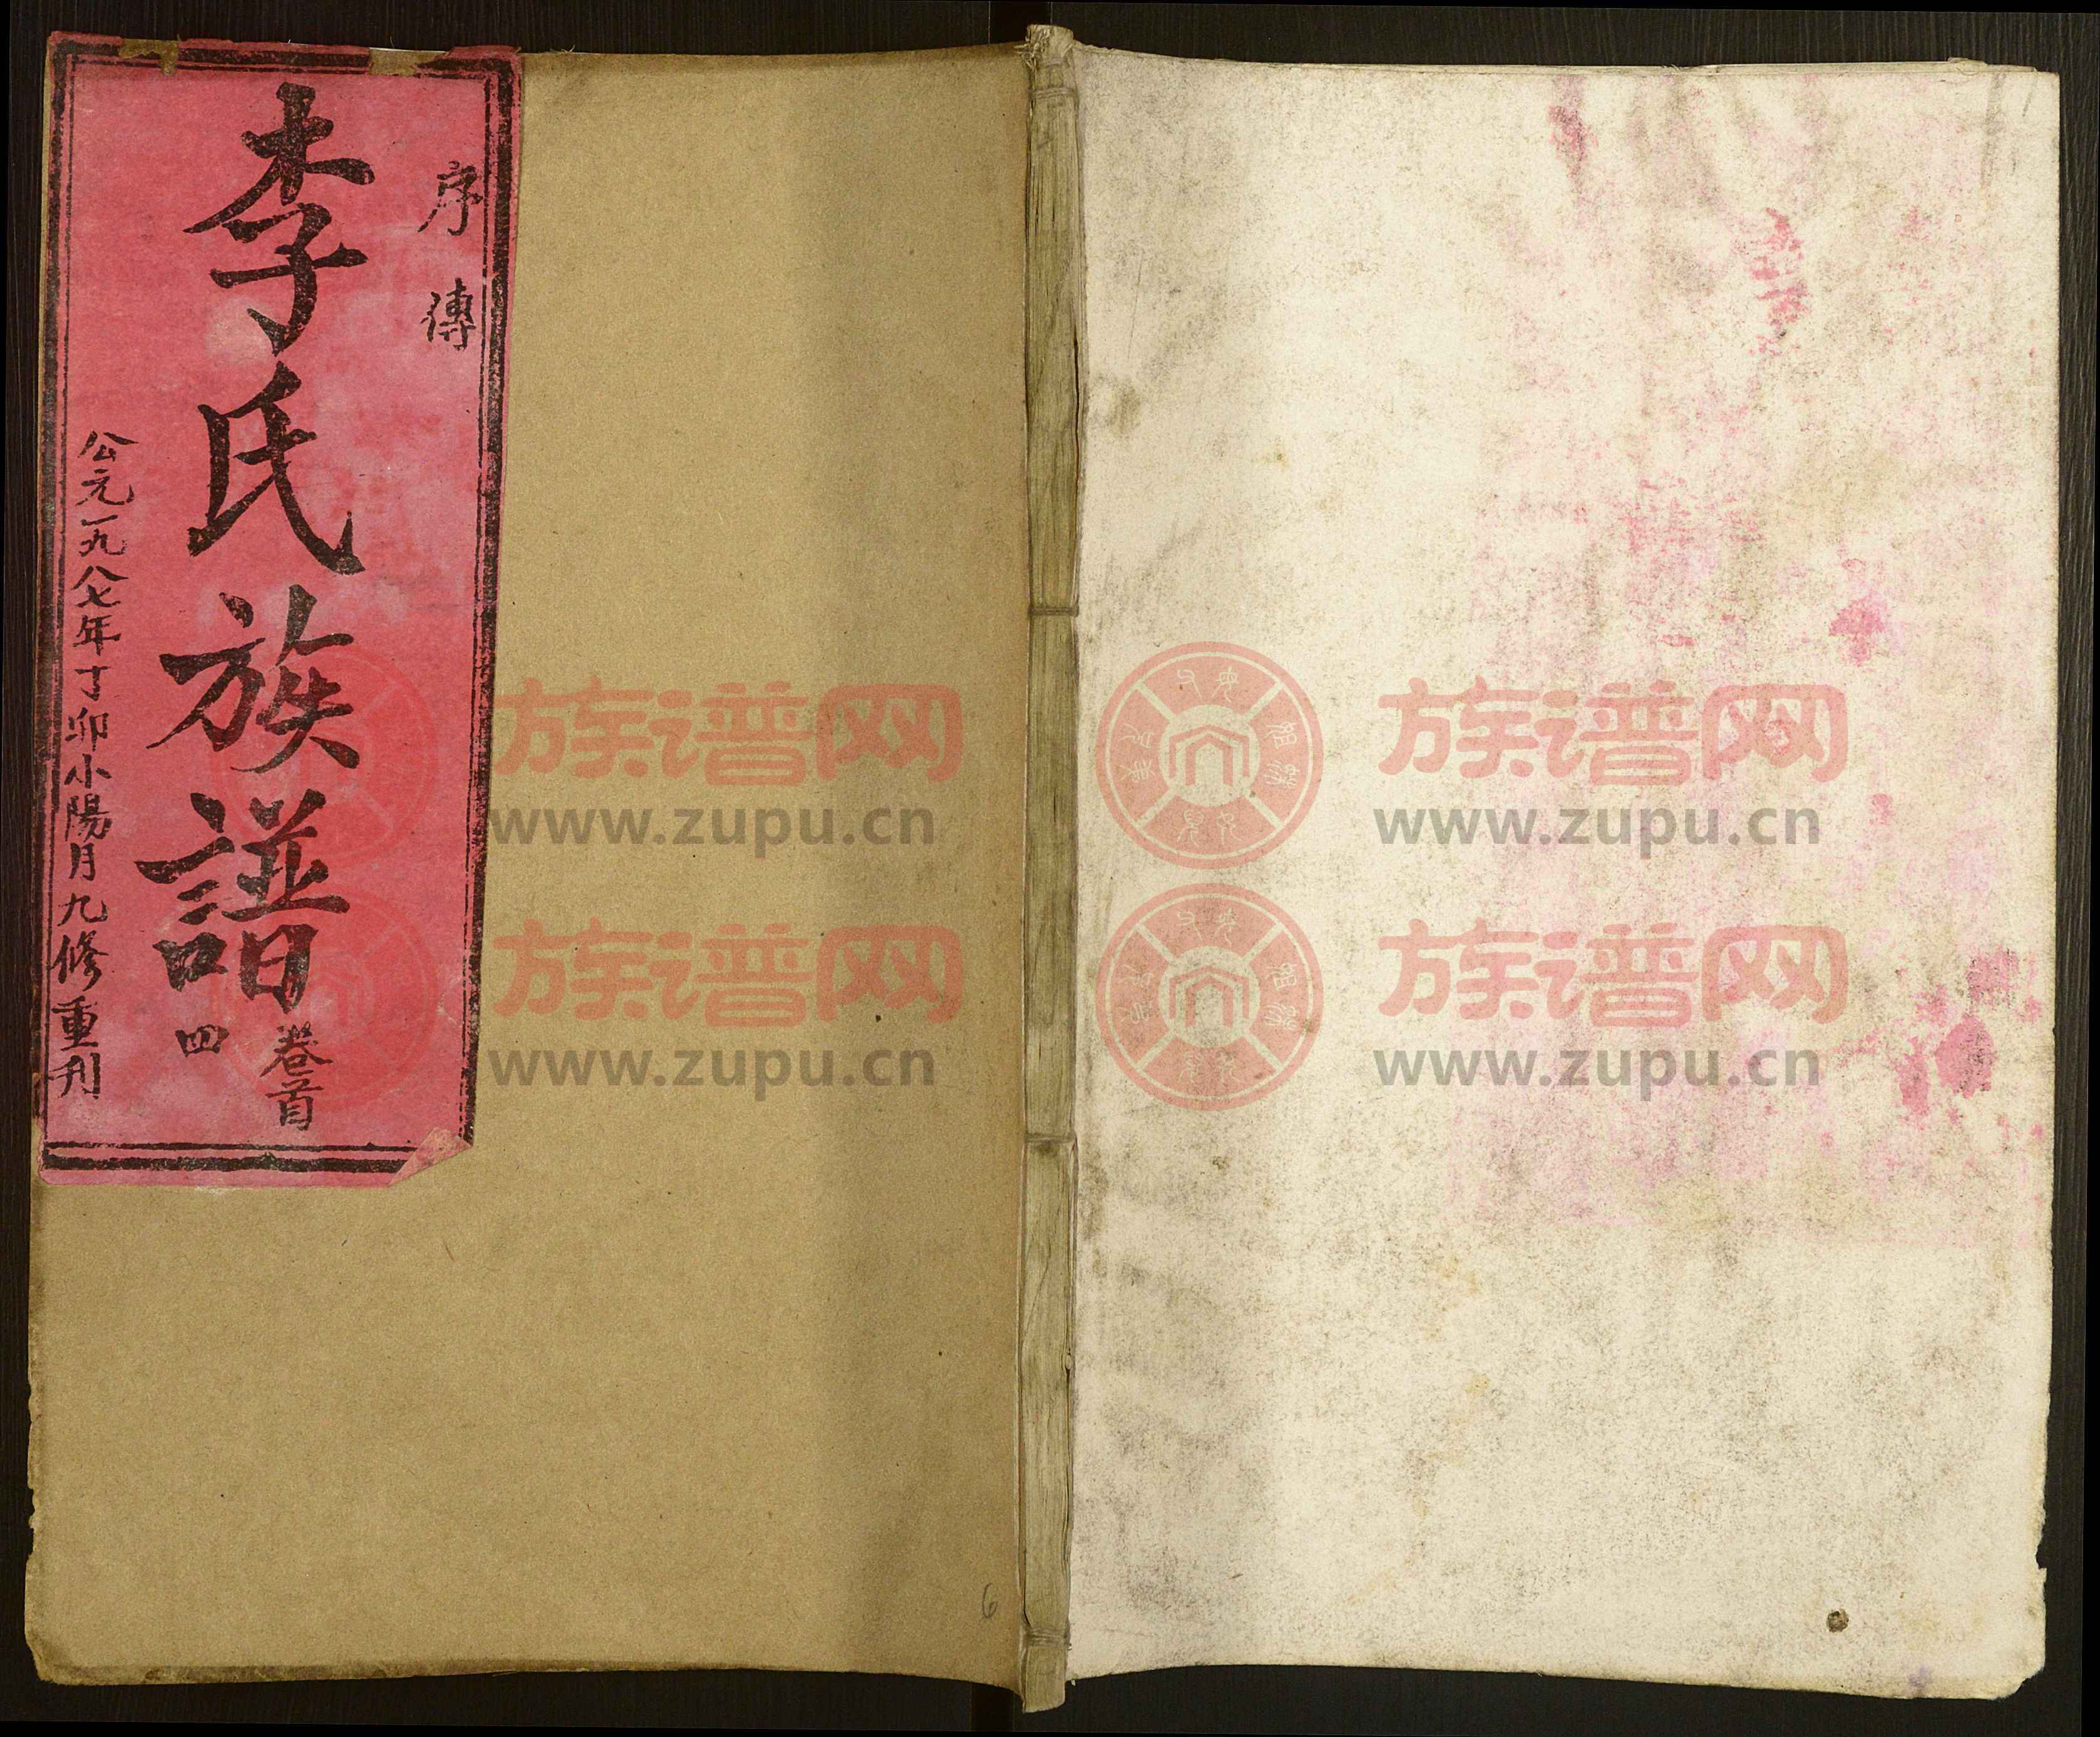 序傳
李氏族譜
卷首
四
公元一九八七年丁卯小陽月九修重刋
族谱网
www.zupu.cn
族谱网
www.zupu.cn
族谱网
www.zupu.cn
族谱网
www.zupu.cn
6